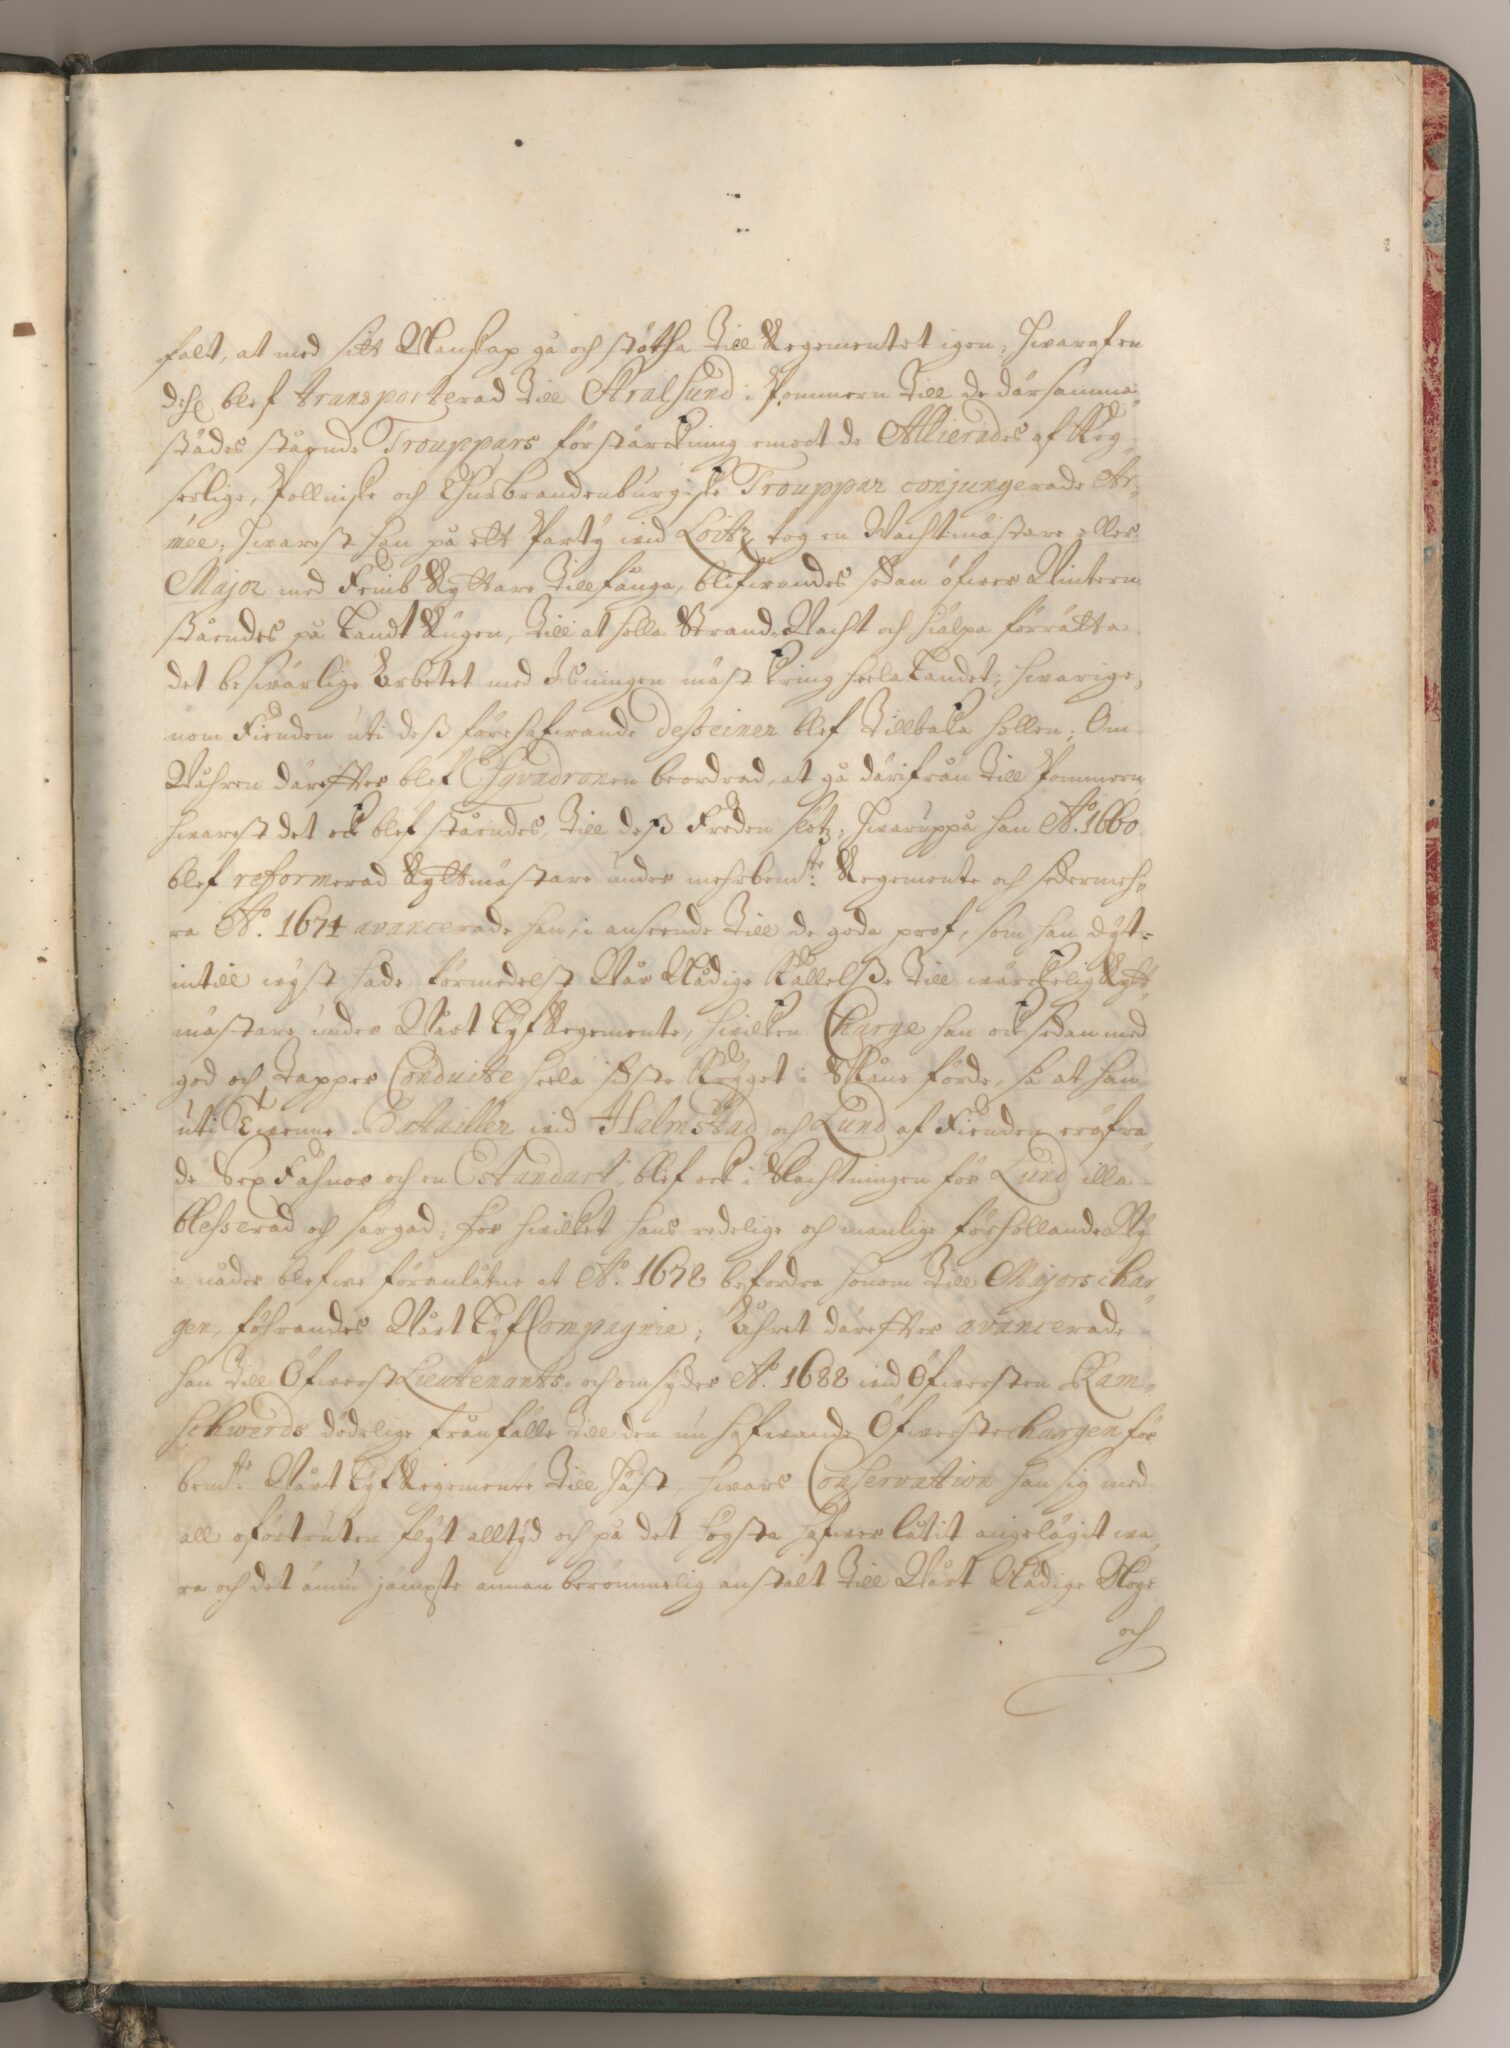 falt, at med sitt Manskap gå och stötha till Regementet igen; hwarafen
blef transporterad till Stralsund i Pommern till de därsamma„
städes ståände Trouppars förstärckning emoot de Allierades af Key„
serlige, Pollniske och Churbrandenburgiske Trouppar conjungerade Ar„
mée; hwarest han på ett Partÿ wid Loitz tog en Wachtmästare eller
Major med Femb Ryttare tillfånga, blifwandes sedan öfwer Wintern
ståendes på Landt Rügen, till at holla Strand Wacht och hiälpa förrätta
det beswärlige Arbetet med Isningen mäst kring heela Landet; hwarige„
nom Fienden uti desß förehafwande desseiner blef tillbaka hollen; Om
Wåhren därefter blef Esqvadronen beordrad, at gå därifrån till Pommern
hwarest det ock blef ståendes, till desß Freden slötz; hwaruppå han Aº. 1660
blef reformerad Ryttmästare under mehrbemte: Regemente och sedermeh„
ra Aº. 1674 avancerade han, i anseende till de goda prof, som han dÿt=
intill wÿst hade, förmedelst Wår Nådige Kallelsse till wärckelig Rytt„
mästare under Wårt LÿfRegemente, hwilken Charge han ock sedan med
god och tapper Conduite heela sidste Krÿget i Skåne förde, så at han
uti Twenne Batailler wid Halmstad och Lund af Fienden eröfra„
de Sex Fahnor och en Estandart, blef ock i Slachtningen för Lund illa
blesserad och sargad; för hwilket hans redelige och manlige förhollande Wÿ
i nåder blefwe föranlåtne at Aº. 1678 befordra honom till Majors char„
gen, föhrandes Wårt LÿfCompagnie; Åhret därefter avancerade
han till ÖfwerstLieutenants. och omsÿder Aº. 1688 wid Öfwersten Ram„
schwerds dödelige frånfälle till den nu hafwande Öfwerste chargen för
bemte: Wårt LÿfRegemente till häst, hwars Conservation han sig med
all oförtruten flÿt alltÿd och på det högsta hafwer låtit angelägit wa„
ra och det ännu jämpte annan berömmelig anstalt till Wårt Nådige Nöÿe
och